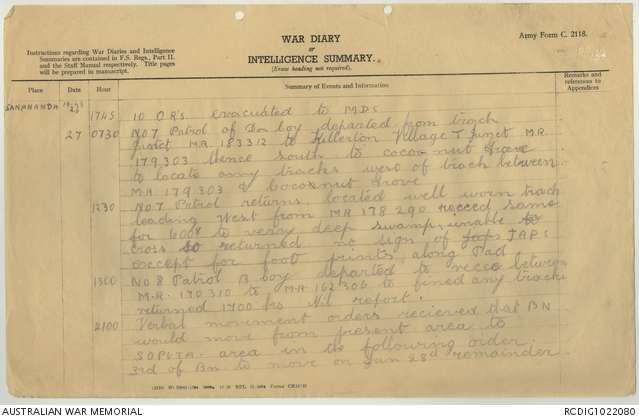 WAR DIARY
or
INTELLIGENCE SUMMARY.
(Erase heading not required).
Army Form C. 2118.
Instructions regarding War Diaries and Intelligence
Summaries are contained in F.S. Regs., Part II.
and the Staff Manual respectively. Title pages
will be prepared in manuscript.
Place Date Hour Summary of Events and Information Remarks and
references to
Appendices
SANANANDA
1745 10 OR's evacuated to MDS
27 0730 No 7 Patrol of Don boy departed from track
junct MR 183312 to Killerton Village T junct M.R.
179303 thence South to cocoanut Grove
to locate any tracks west of track between
MR 179303 & Cocoanut Grove
1230 No 7 Patrol returns, located well worn track
leading West from MR 178290 recced same
for 600x to very deep swamp, unable to
cross so returned no sign of Japs JAPS
except for foot prints, along Pad
1300 No 8 Patrol B boy departed to recce between
M.R. 170310 to MR 162306 to fined any tracks
returned 1700 hrs Nil report.
2100 Verbal movement orders recieved that BN
would move from present area to
SOPUTA area in the following order
3rd of Bn to move on Jan 28th remainder
AUSTRALIAN WAR MEMORIAL
RCDIG1022080